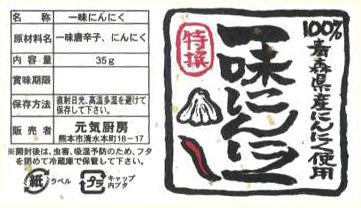 名称 一味にんにく
原材料名 一味唐辛子、にんにく
内容量 35g
賞味期限
保存方法 直射日光、高温多湿を避けて
保存して下さい。
販売者 元気厨房
熊本市清水本町16-17
※開封後は、虫害、吸湿予防のため、フタ
を閉めて冷蔵庫で保管して下さい。
紙 ラベル
プラ キャップ
内ブタ
100%青森県産にんにく使用
特撰
一味にんにく